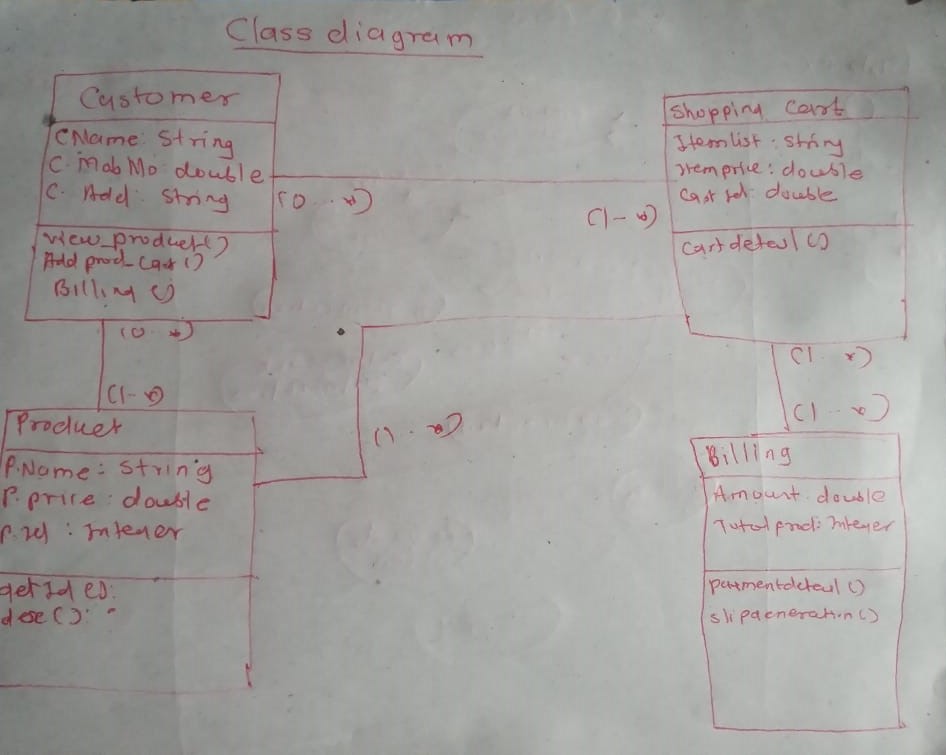 Class diagram
Customer
CName: String
C. Mob No: double
C. Add: String
view_product()
Add prod_Cart()
Billing ()
(0..*)
(1-*)
Shopping Cart
Itemlist: string
Itemprice: double
Cart Id: double
Cartdetail ()
(0..*)
(1-*)
(1..*)
(1..*)
(1..*)
Product
P.Name: String
P. price: double
P. Id: Integer
getId ():
desc ():
Billing
Amount: double
Total prod: Integer
paymentdetail ()
slipgeneration ()